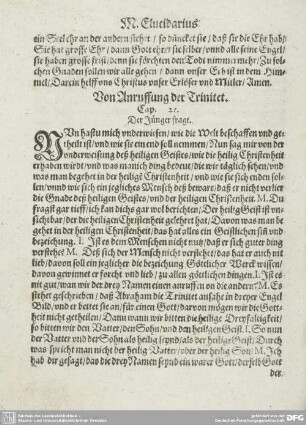 M. Elucidarius
ein Seel ehr an der andern siehet / so düncket sie / daß sie die Ehr hab /
Sie hat grosse Ehr / dann Gott ehret / sie selber / vnnd alle seine Engel /
sie haben grosse frist / denn sie förchten den Todt nimmermehr / Zu sol-
chen Gnaden sollen wir alle gehen / dann vnser Erb ist in dem Him-
mel / Darein helff vns Christus vnser Erlöser vnd Mitler / Amen.
Von Anruffung der Trinitet.
Cap.
Der Jünger fragt.
NVn hastu mich vnderwiesen / wie die Welt beschaffen vnd ge-
theilt ist / vnd wie sie ein end soll nemmen / Nun sag mir von der
vnderweisung deß heiligen Geistes / wie die heilig Christenheit
erhaben wirdt / vnd was man sich ding bedeut / die wir täglich sehen / vnd
was man begehet in der heiligē Christenheit / vnd wie sie sich enden sol-
len / vnnd wie sich ein jegliches Mensch deß beware / daß er nicht verlier
die Gnade deß heiligen Geistes / vnd der heiligen Christenheit. M. Du
fragst gar tieff / ich kan dichs gar wol berichten / Der heilig Geist ist vn-
sichtbar / der die heiligen Christenheit gelehret hat / Davon was man be-
gehet in der heiligen Christenheit / das hat alles ein Geistlichen siñ vnd
bezeichung. J. Ist es dem Menschen nicht nutz / daß er sich guter ding
verstehet? M. Deß sich der Mensch nicht verstehet / das hat er auch nit
lieb / davon soll ein jeglicher die bezeichung Göttlicher Werck wissen /
davon gewinnet er forcht vnd lieb / zu allen göttlichen dingen. J. Ist es
nit gut / wan wir der drey Namen einen anruffen on die andern? M. Es
stehet geschrieben / daß Abraham die Trinitet ansahe in dreyer Engel
Bild / vnd er bettet sie an / für einen Gott / darvon mögen wir die Gott-
heit nicht getheilen / Dann wann wir bitten die heilige Dreyfaltigkeit /
so bitten wir den Vatter / den Sohn / vnd den heiligen Geist. J. So nun
der Vatter vnd der Sohn als heilig seynd / als der heilige Geist / Durch
was spricht man nicht der heilig Vatter / oder der heilig Son? M. Ich
hab dir gesagt / das die drey Namen seynd ein warer Gott / derselb Gott
der.